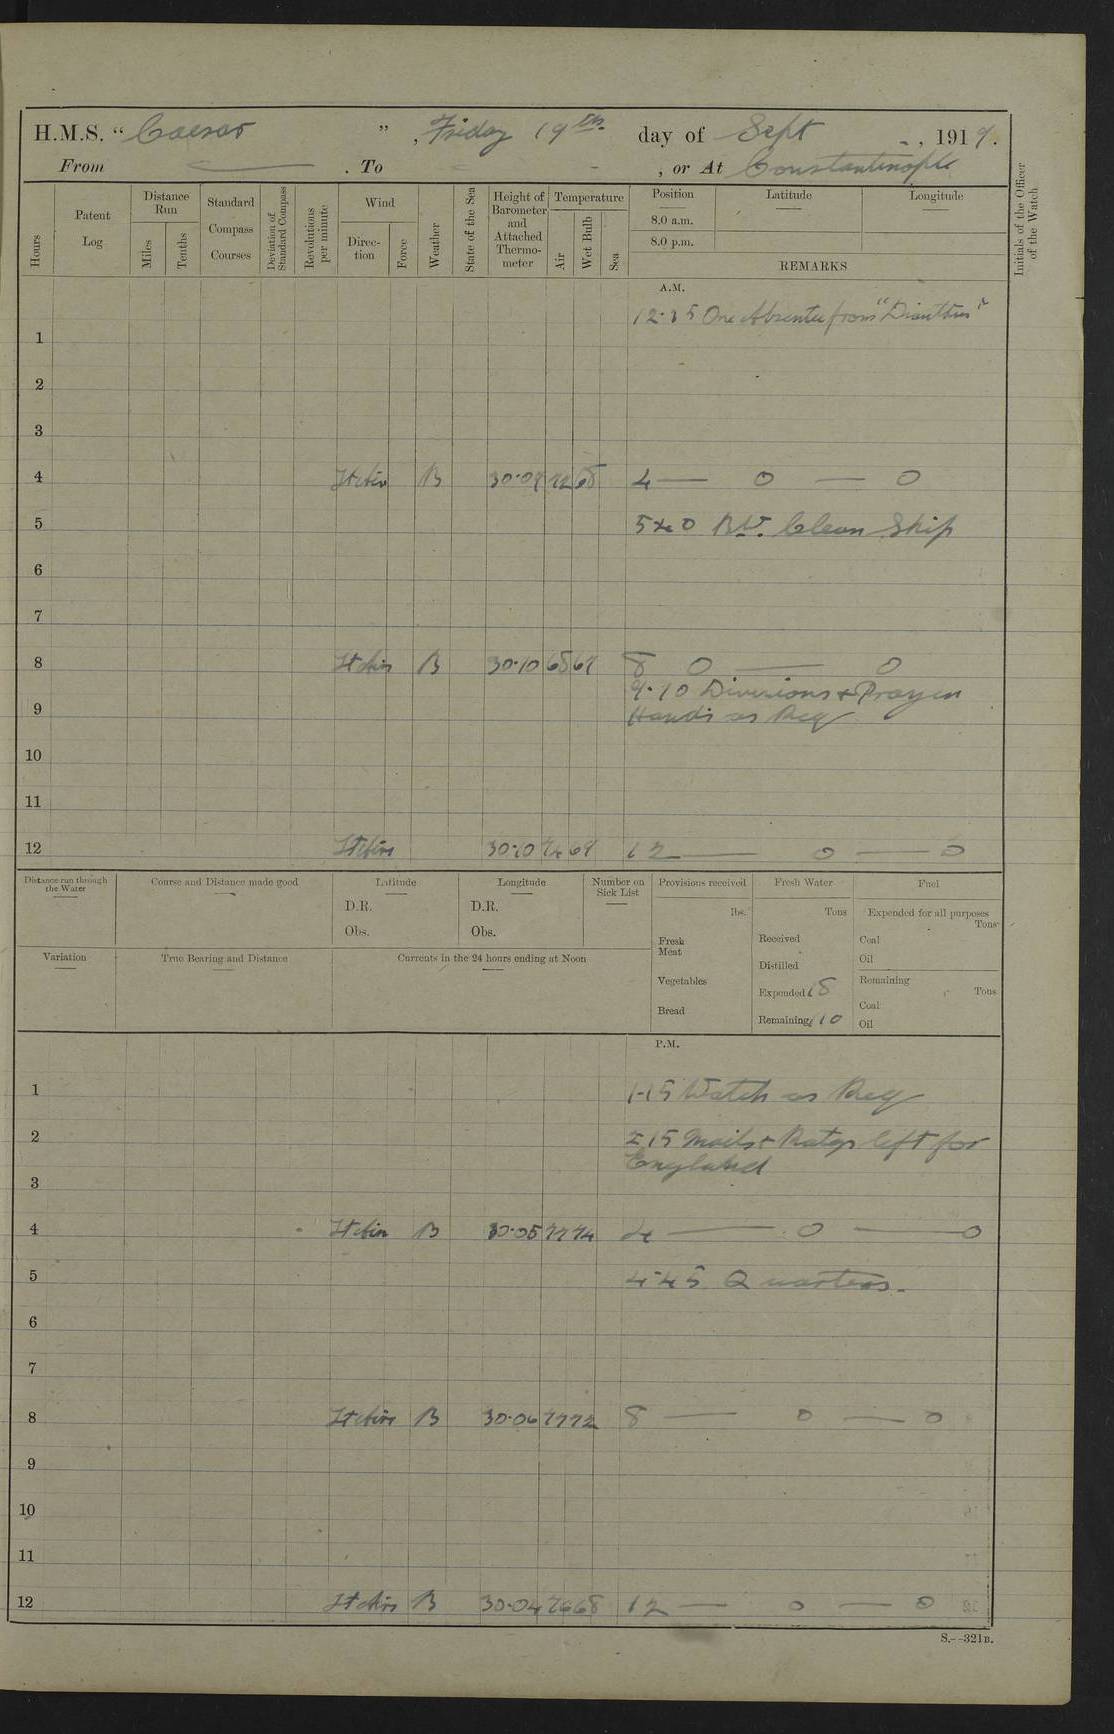 H.M.S. "Caesar", Friday 19th day of Sept, 1919.
From — . To - , or At Constantinople
Hours
Patent Log
Distance Run
Miles
Tenths
Standard Compass Courses
Deviation of Standard Compass
Revolutions per minute
Wind
Direc-tion
Force
Weather
State of the Sea
Height of Barometer and Attached Thermo-meter
Temperature
Air
Wet Bulb
Sea
Position
Latitude
Longitude
8.0 a.m.
8.0 p.m.
REMARKS
Initials of the Officer of the Watch
A.M.
12.15 One Absentee from "Dianthus"
1
2
3
4 Lt Airs B 30.09 72 68 4 — 0 — 0
5 Clean Ship
6
7
8 Lt Airs B 30.10 68 67 8 0 — 0
9.10 Divisions & Prayers
9 Hands as Req
10
11
12 Lt Airs 30.10 74 69 12 — 0 — 0
Distance run through the Water
Course and Distance made good
Latitude
D.R.
Obs.
Longitude
D.R.
Obs.
Number on Sick List
Provisions received
lbs.
Fresh Meat
Vegetables
Bread
Fresh Water
Tons
Received
Distilled
Expended 18
Remaining 110
Fuel
Expended for all purposes
Tons
Coal
Oil
Remaining
Tons
Coal
Oil
Variation
True Bearing and Distance
Currents in the 24 hours ending at Noon
P.M.
1 1.15 Watch as Req
2 2.15 Mails & Ratgs left for
England
3
4 Lt Airs B 30.05 77 74 4 — 0 — 0
5 4.45 Quarters.
6
7
8 Lt Airs B 30.06 77 72 8 — 0 — 0
9
10
11
12 Lt Airs B 30.04 76 68 12 — 0 — 0
S.—321B.